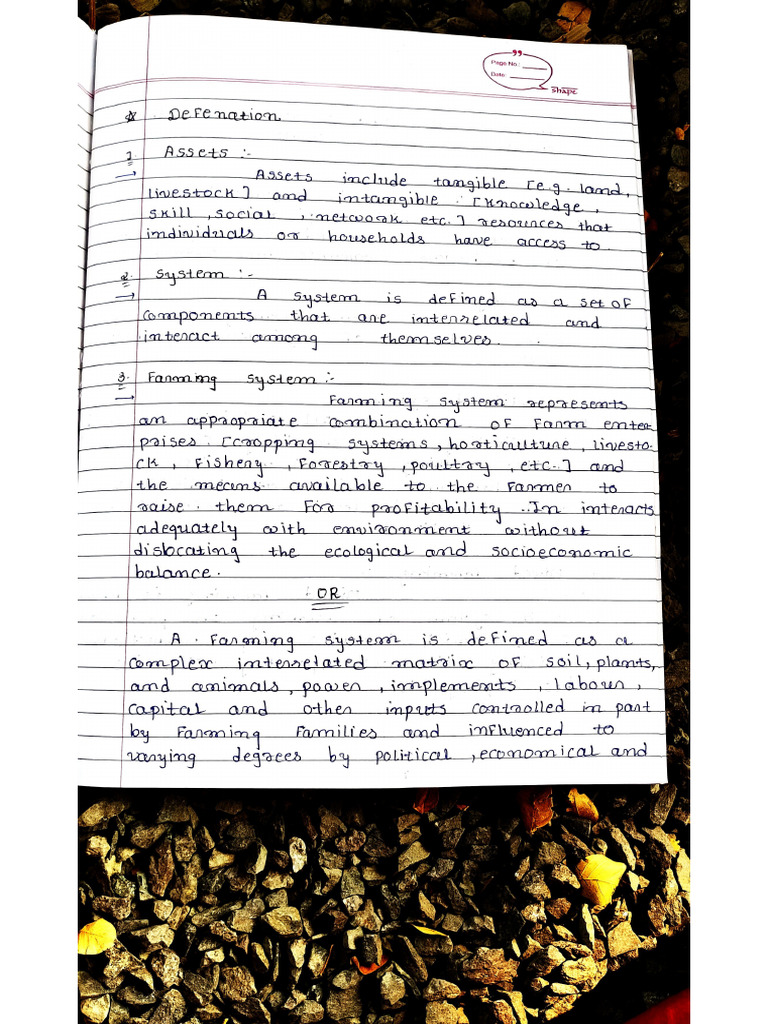 Page No:
Date:
Shape
☆ Defenation
1. Assets :-
→ Assets include tangible [e.g. land,
livestock] and intangible [knowledge,
skill, social, network etc.] resources that
individuals or households have access to.
2. System :-
→ A system is defined as a set of
components that are interrelated and
interact among themselves.
3. Farming system :-
→ Farming system represents
an appropriate combination of farm enter
prises [cropping systems, horticulture, livesto-
ck, fishery, forestry, poultry, etc.] and
the means available to the farmer to
raise them for profitability. In interacts
adequately with environment without
dislocating the ecological and socioeconomic
balance.
OR
A farming system is defined as a
complex interrelated matrix of soil, plants,
and animals, power, implements, labour,
capital and other inputs controlled in part
by farming families and influenced to
varying degrees by political, economical and